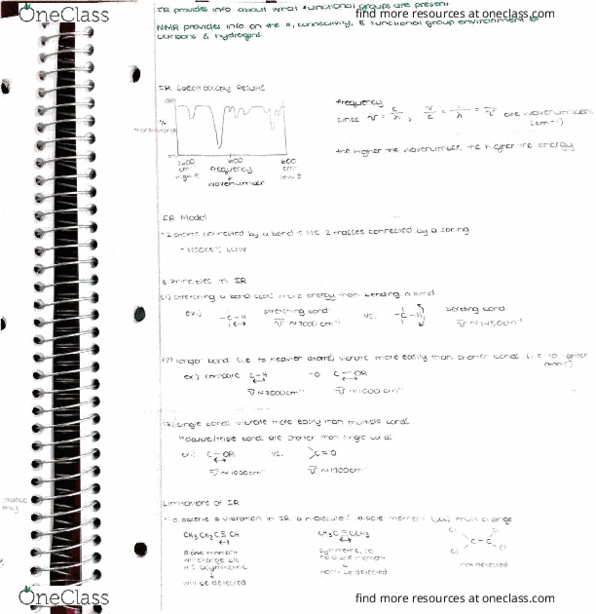 OneClass
find more resources at oneclass.com
IR provides info about what functional groups are present
NMR provides info on the #, connectivity, & functional group environment of
carbons & hydrogens
IR Spectroscopy Results
100%
%
frequency
since ν = c/λ , ν/c = 1/λ = ν̄ are wavenumbers
(cm-1)
the higher the wavenumber, the higher the energy
3600 1600 600
cm-1 cm-1
frequency
high E low E
wavenumber
IR Model
- 2 atoms connected by a bond is like 2 masses connected by a spring
- Hooke's Law
Principles in IR
(1) stretching a bond costs more energy than bending a bond
ex:) -C-H stretching bond: vs. -C-H bending bond:
ν̄ ~ 3000cm-1 ν̄ ~ 1450cm-1
(2) longer bonds (i.e. to heavier atoms) vibrate more easily than shorter bonds (i.e. to lighter
atoms)
ex:) compare C-H to C-OR
ν̄ ~ 3000cm-1 ν̄ ~ 1000cm-1
(3) single bonds vibrate more easily than multiple bonds
double/triple bonds are shorter than single bonds
ex: C-OR vs. C=O
ν̄ ~ 1000cm-1 ν̄ ~ 1700cm-1
Limitations of IR
to observe a vibration in IR a molecule's dipole moment must change
CH3CH2C≡CH
dipole moment
will change b/c
it's asymmetric
will be detected
symmetric, so
no dipole moment
won't be detected
Cl Cl
C=C
Cl Cl
not detected
OneClass
find more resources at oneclass.com